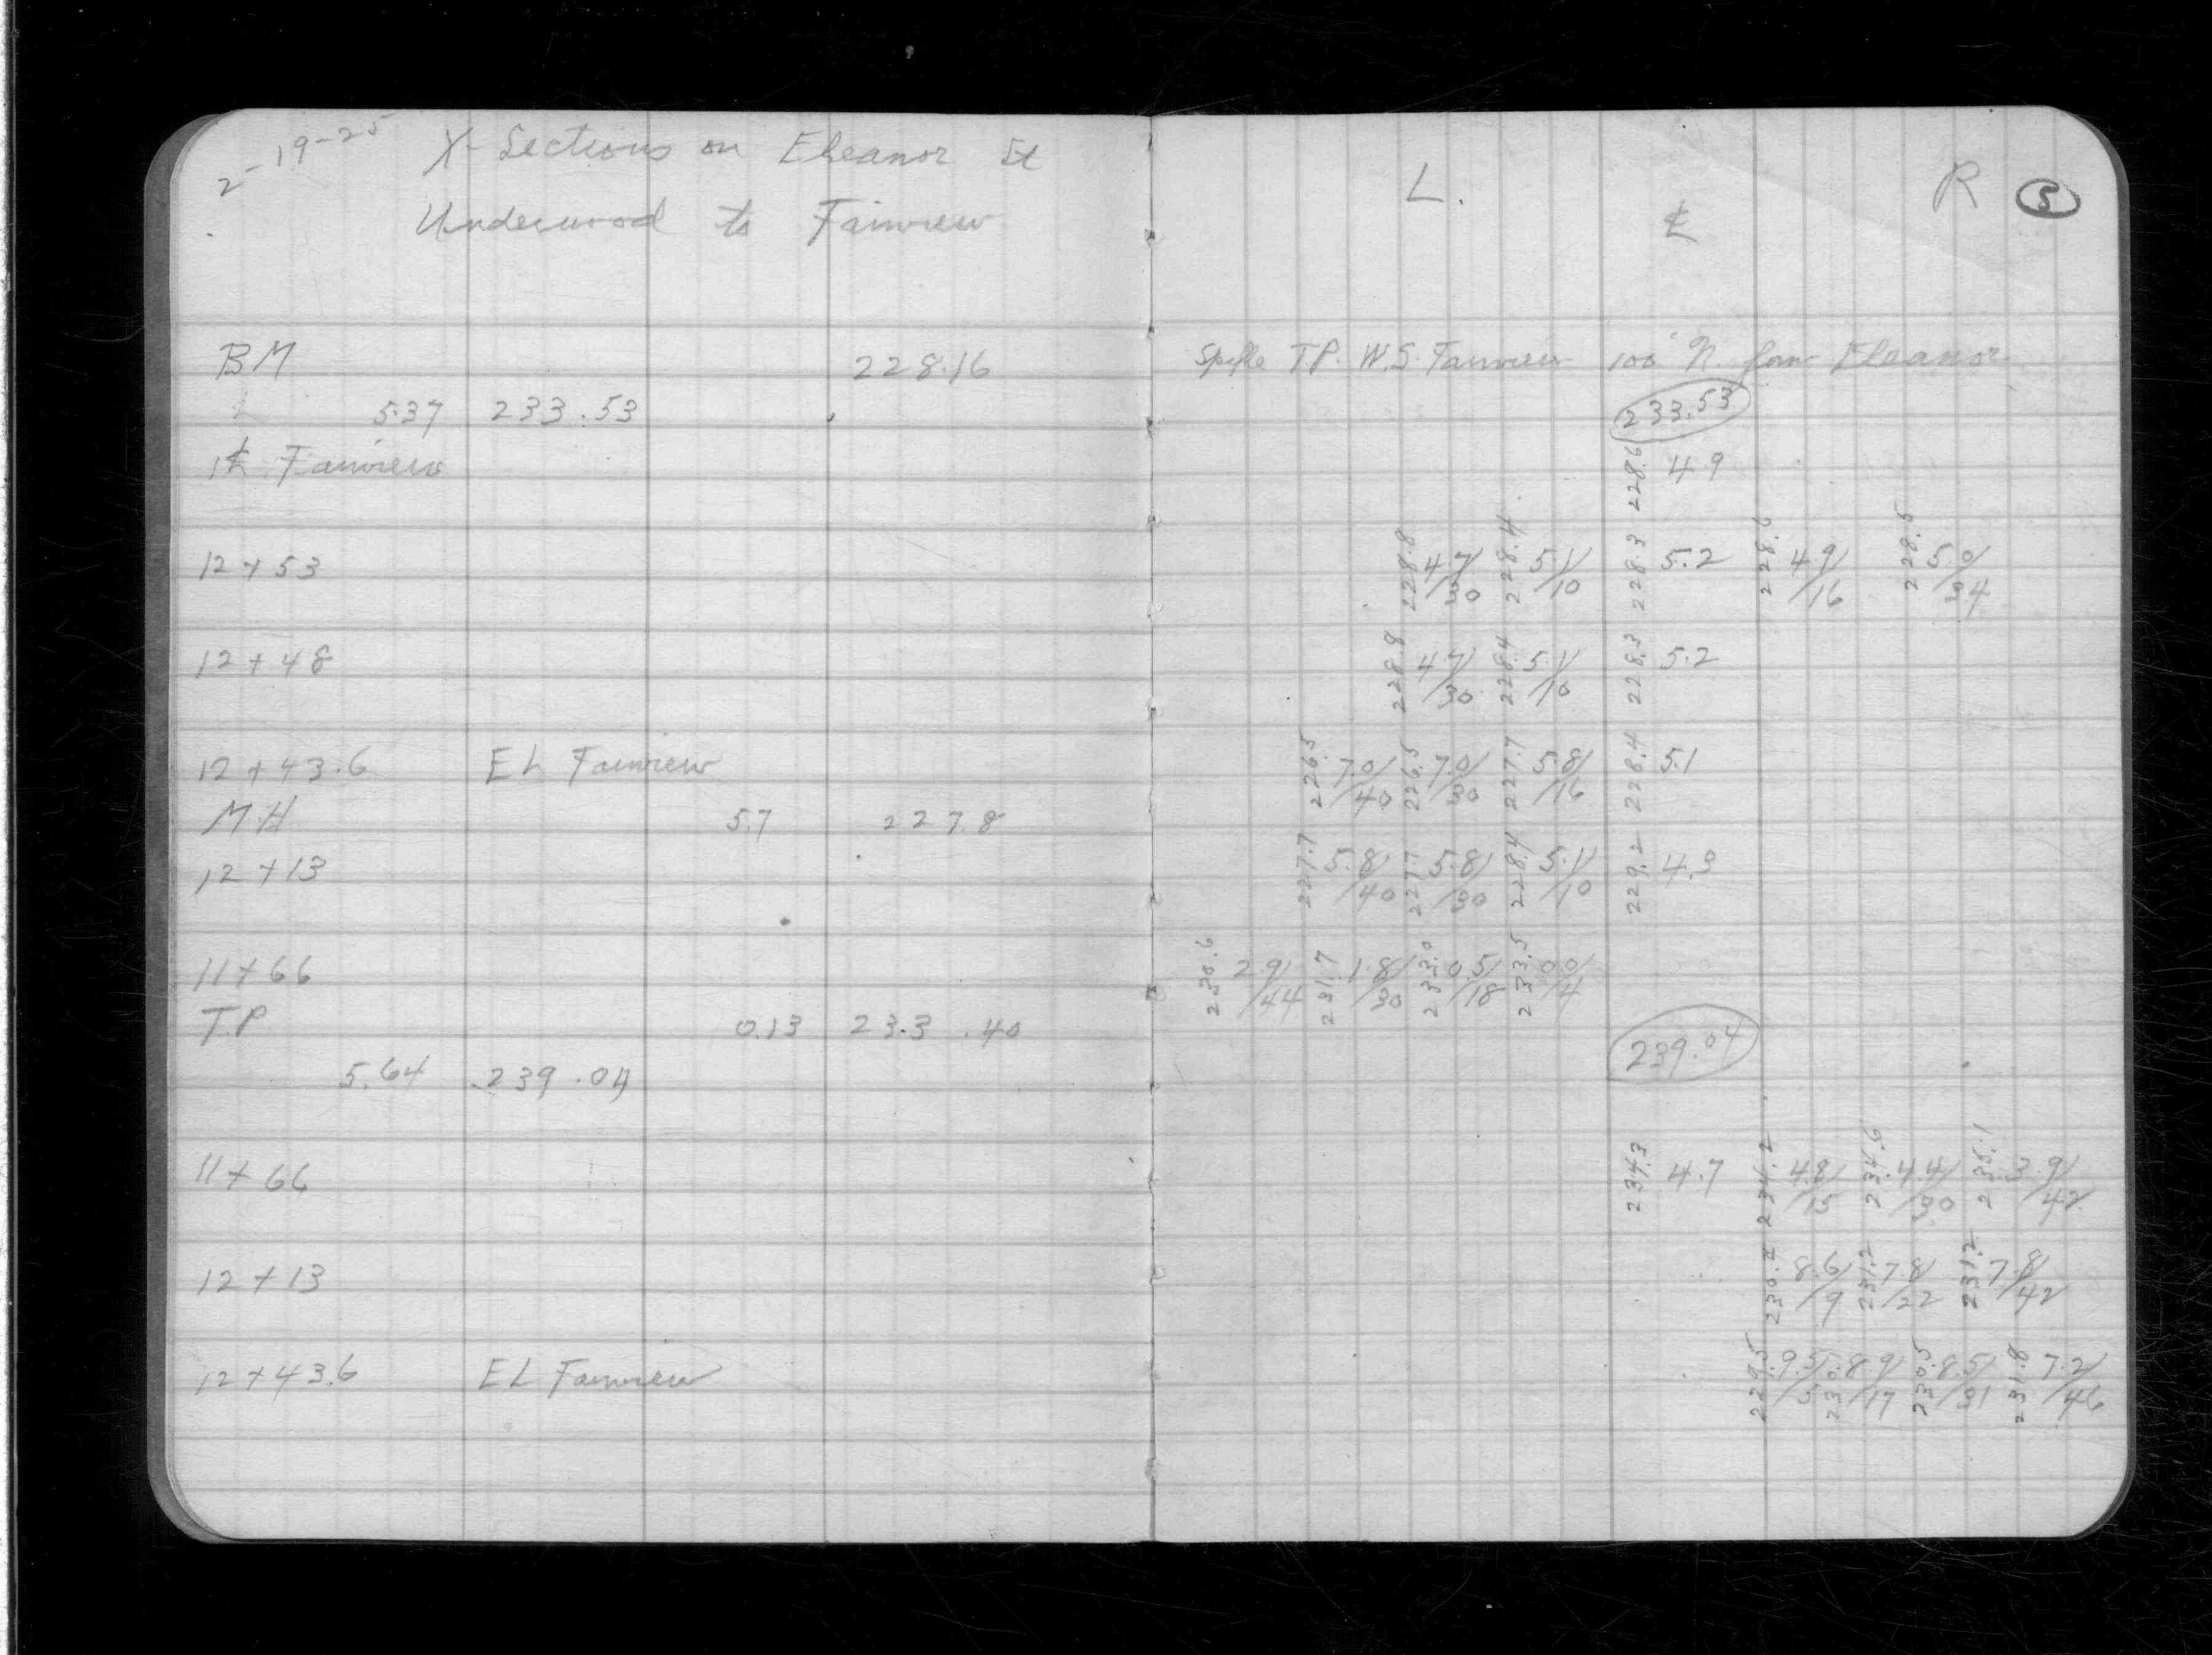 2-19-25 X-Sections on Eleanor St
Underwood to Fairview
BM 228.16
5.37 233.53
℄ Fairview
12+53
12+48
12+43.6 EL Fairview
M.H 5.7 227.8
12+13
11+66
T.P 0.13 233.40
5.64 239.04
11+66
12+13
12+43.6 EL Fairview
L. ℄ R 5
Spike T.P. W.S. Fairview 100' N. from Eleanor
233.53
228.6 4.9
228.8 4.7/30 228.4 5.1/10 228.3 5.2 228.6 4.9/16 228.5 5.0/34
228.8 4.7/30 228.4 5.1/10 228.3 5.2
226.5 7.0/40 226.5 7.0/30 227.7 5.8/16 228.4 5.1
227.7 5.8/40 227.7 5.8/30 228.4 5.1/10 229.2 4.3
230.6 2.9/44 231.7 1.8/30 233.0 0.5/18 233.5 0.0/4
239.04
234.3 4.7 234.2 4.8/15 234.6 4.4/30 235.1 3.9/42
230.4 8.6/9 231.2 7.8/22 231.2 7.8/42
229.5 9.5/5 230.1 8.9/17 230.5 8.5/31 231.8 7.2/46